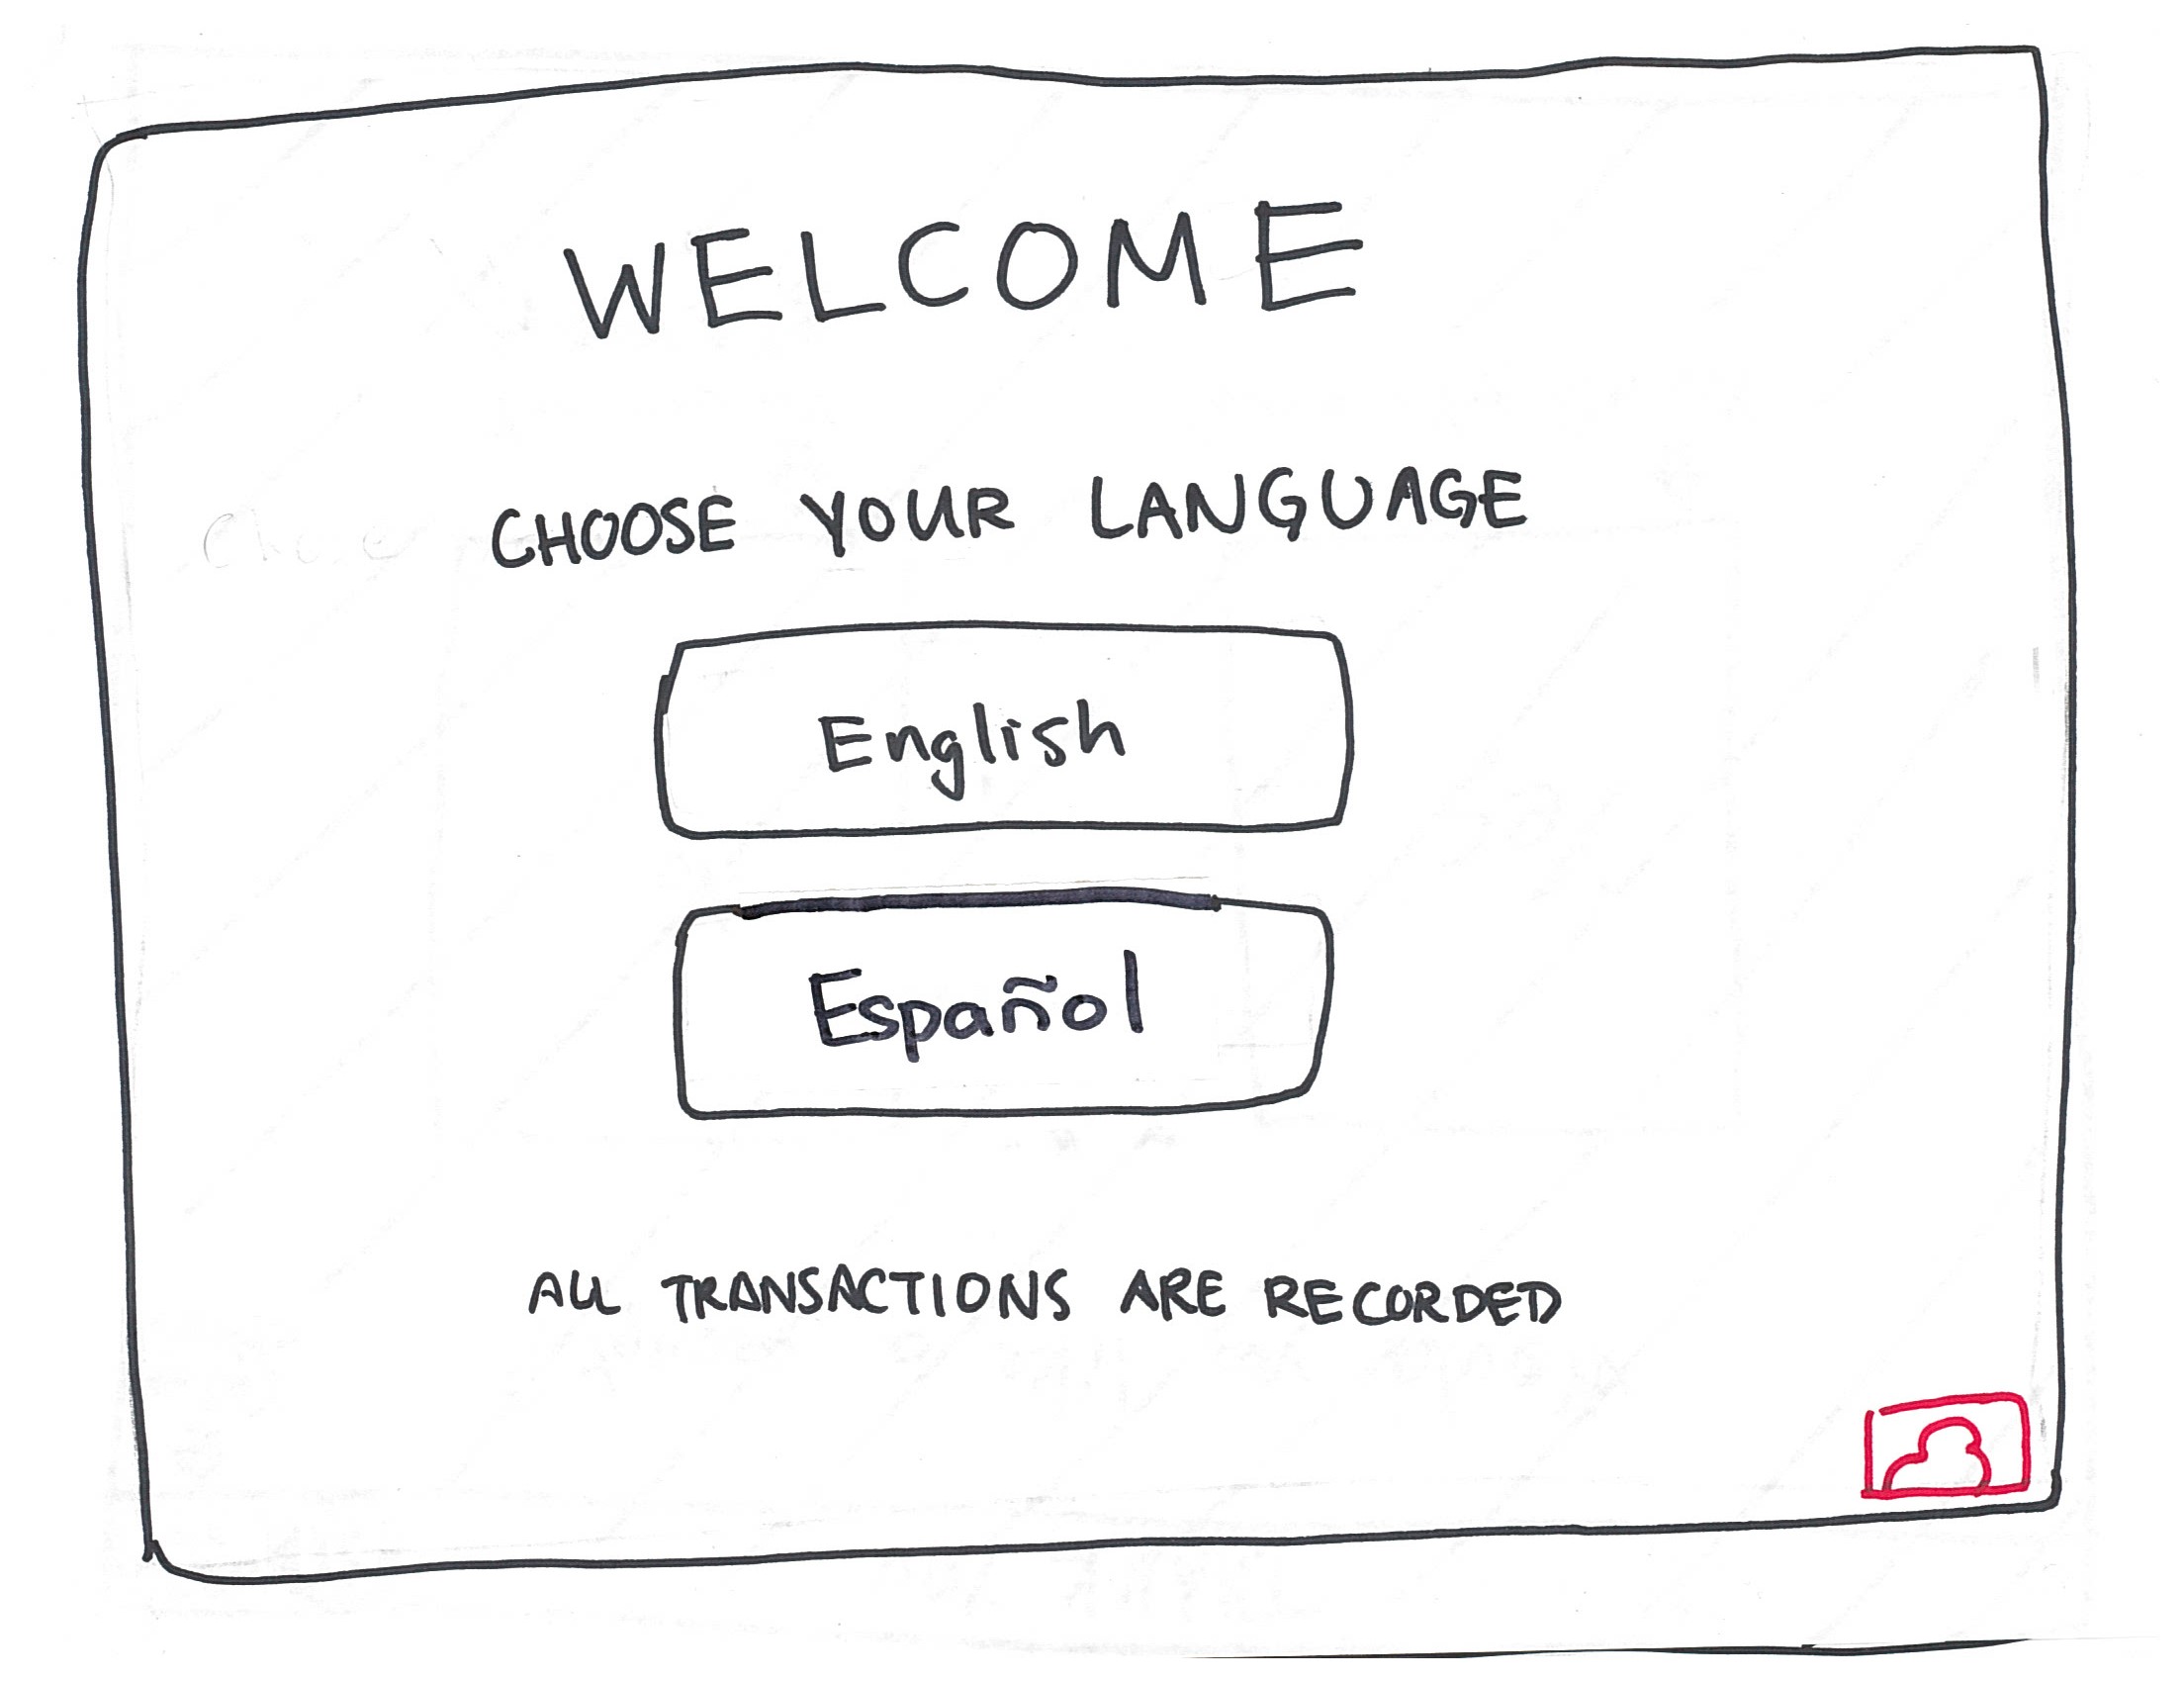 WELCOME
CHOOSE YOUR LANGUAGE
English
Español
ALL TRANSACTIONS ARE RECORDED